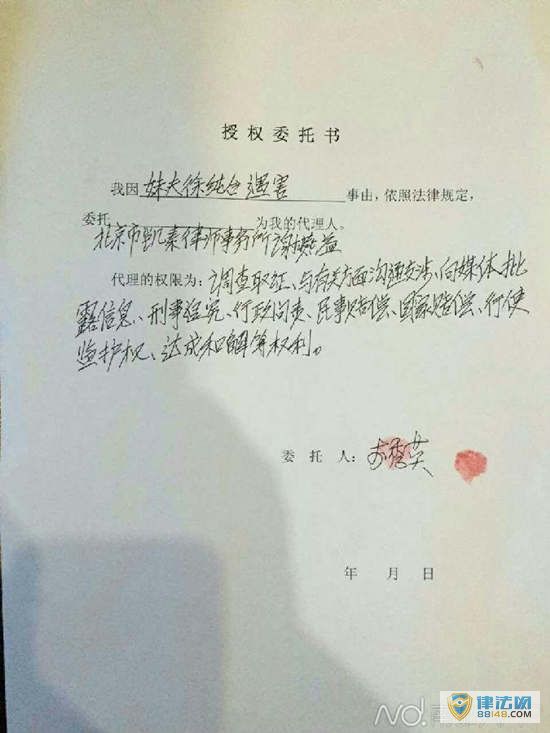 授权委托书
我因 妹夫徐纯合遇害 事由，依照法律规定，
委托 为我的代理人。
北京市凯泰律师事务所谢燕益
代理的权限为：调查取证、与有关方面沟通交涉、向媒体批
露信息、刑事追究、行政问责、民事赔偿、国家赔偿、行使
监护权、达成和解等权利。
委托人：李秀英
年 月 日
律法网
88148.com